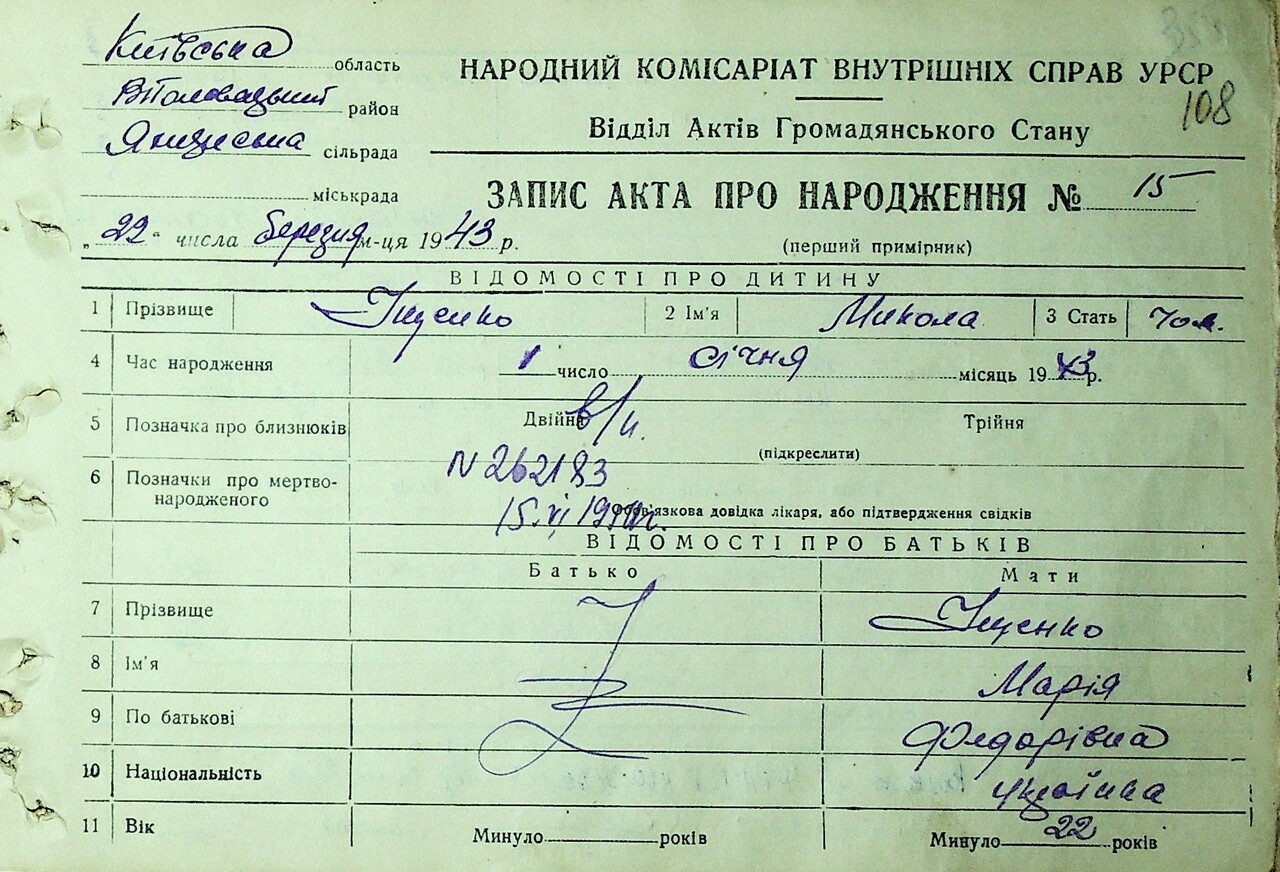 Київська область
район
сільрада
міськрада
НАРОДНИЙ КОМІСАРІАТ ВНУТРІШНІХ СПРАВ УРСР
108
Відділ Актів Громадянського Стану
ЗАПИС АКТА ПРО НАРОДЖЕННЯ № 15
„22" числа березня м-ця 1943 р.
(перший примірник)
ВІДОМОСТІ ПРО ДИТИНУ
1 Прізвище Іщенко 2 Ім'я Микола 3 Стать Чол.
4 Час народження 1 число січня місяць 1943 р.
5 Позначка про близнюків Двійня Трійня
(підкреслити)
6 Позначки про мертво-
народженого
N 262183
15.VI
Обов'язкова довідка лікаря, або підтвердження свідків
ВІДОМОСТІ ПРО БАТЬКІВ
Батько Мати
7 Прізвище Іщенко
8 Ім'я Марія
9 По батькові Федорівна
10 Національність українка
11 Вік Минуло років Минуло 22 років